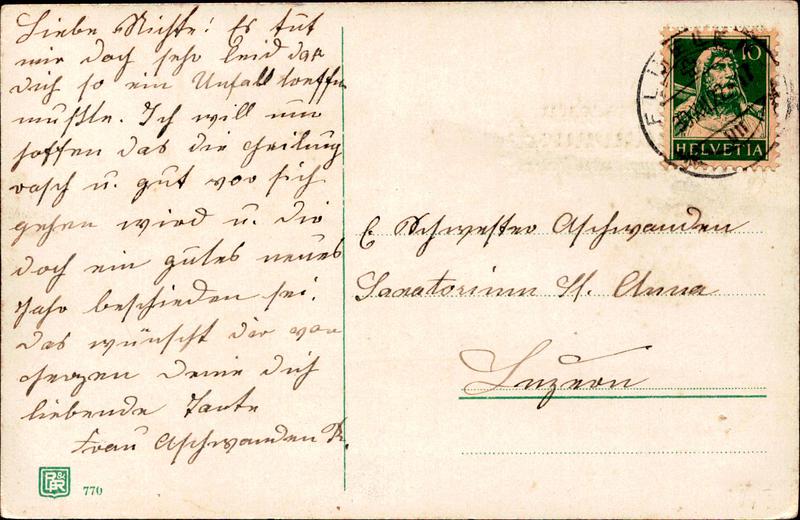 Liebe Nichte! Es tut
mir doch sehr leid das
dich so ein Unfall treffen
mußte. Ich will nun
hoffen das die Heilung
rasch u. gut vor sich
gehen wird u. dir
doch ein gutes neues
Jahr beschieden sei.
das wünscht dir von
Herzen deine dich
liebende Tante
Frau Aschwanden
770
10
HELVETIA
Schwester Aschwanden
Sanatorium St. Anna
Luzern